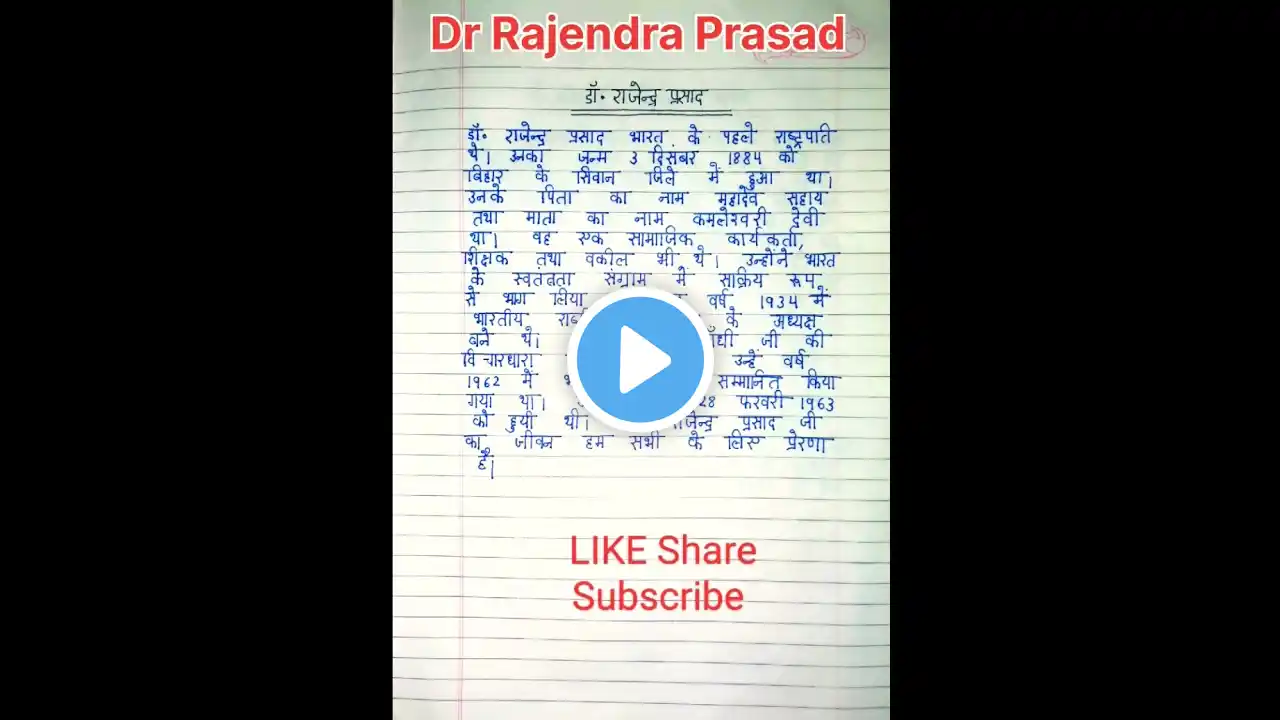 Dr Rajendra Prasad
डॉ. राजेन्द्र प्रसाद
डॉ. राजेन्द्र प्रसाद भारत के पहले राष्ट्रपति
थे। उनका जन्म 3 दिसंबर 1884 को
बिहार के सिवान जिले में हुआ था।
उनके पिता का नाम महादेव सहाय
तथा माता का नाम कमलेश्वरी देवी
था। वह एक सामाजिक कार्यकर्ता,
शिक्षक तथा वकील भी थे। उन्होंने भारत
के स्वतंत्रता संग्राम में सक्रिय रूप
से भाग लिया वर्ष 1934 में
भारतीय के अध्यक्ष
बने थे। जी की
विचारधारा उन्हें वर्ष
1962 में सम्मानित किया
गया था। 28 फरवरी 1963
को हुयी थी। प्रसाद जी
का जीवन हम सभी के लिए प्रेरणा
है।
LIKE Share
Subscribe